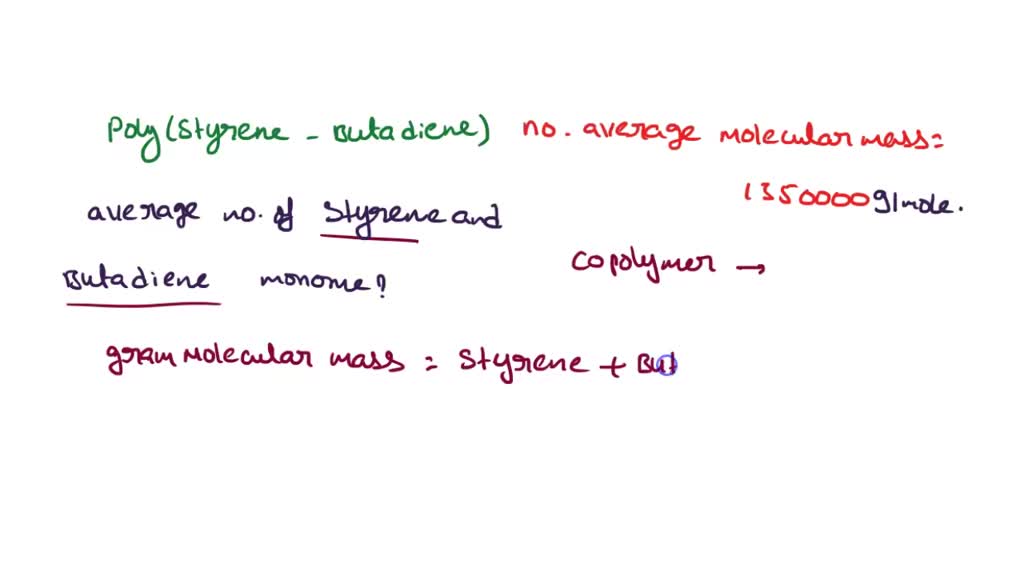 Poly(Styrene - Butadiene) no. average molecular mass =
1350000 g/mole.
average no. of Styrene and
Butadiene monome?
copolymer →
gram Molecular mass = Styrene + But